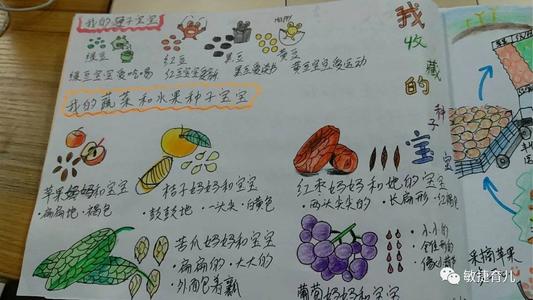 我的种子宝宝
HAPPY
绿豆 红豆 黑豆 黄豆
绿豆宝宝爱唱歌 红豆宝宝 黑豆爱读书 黄豆宝宝爱运动
我的蔬菜和水果种子宝宝
我收藏的种子宝宝
苹果妈妈和宝宝
·扁扁地 ·褐色
桔子妈妈和宝宝
·鼓鼓地 ·一头尖 ·白黄色
红枣妈妈和她的宝宝
·两头尖尖的 ·长扁形 ·红褐色
苦瓜妈妈和宝宝
·扁扁的 ·大大的
·外面包着瓤
葡萄妈妈和宝宝
·小小的
采摘苹果
敏捷育儿